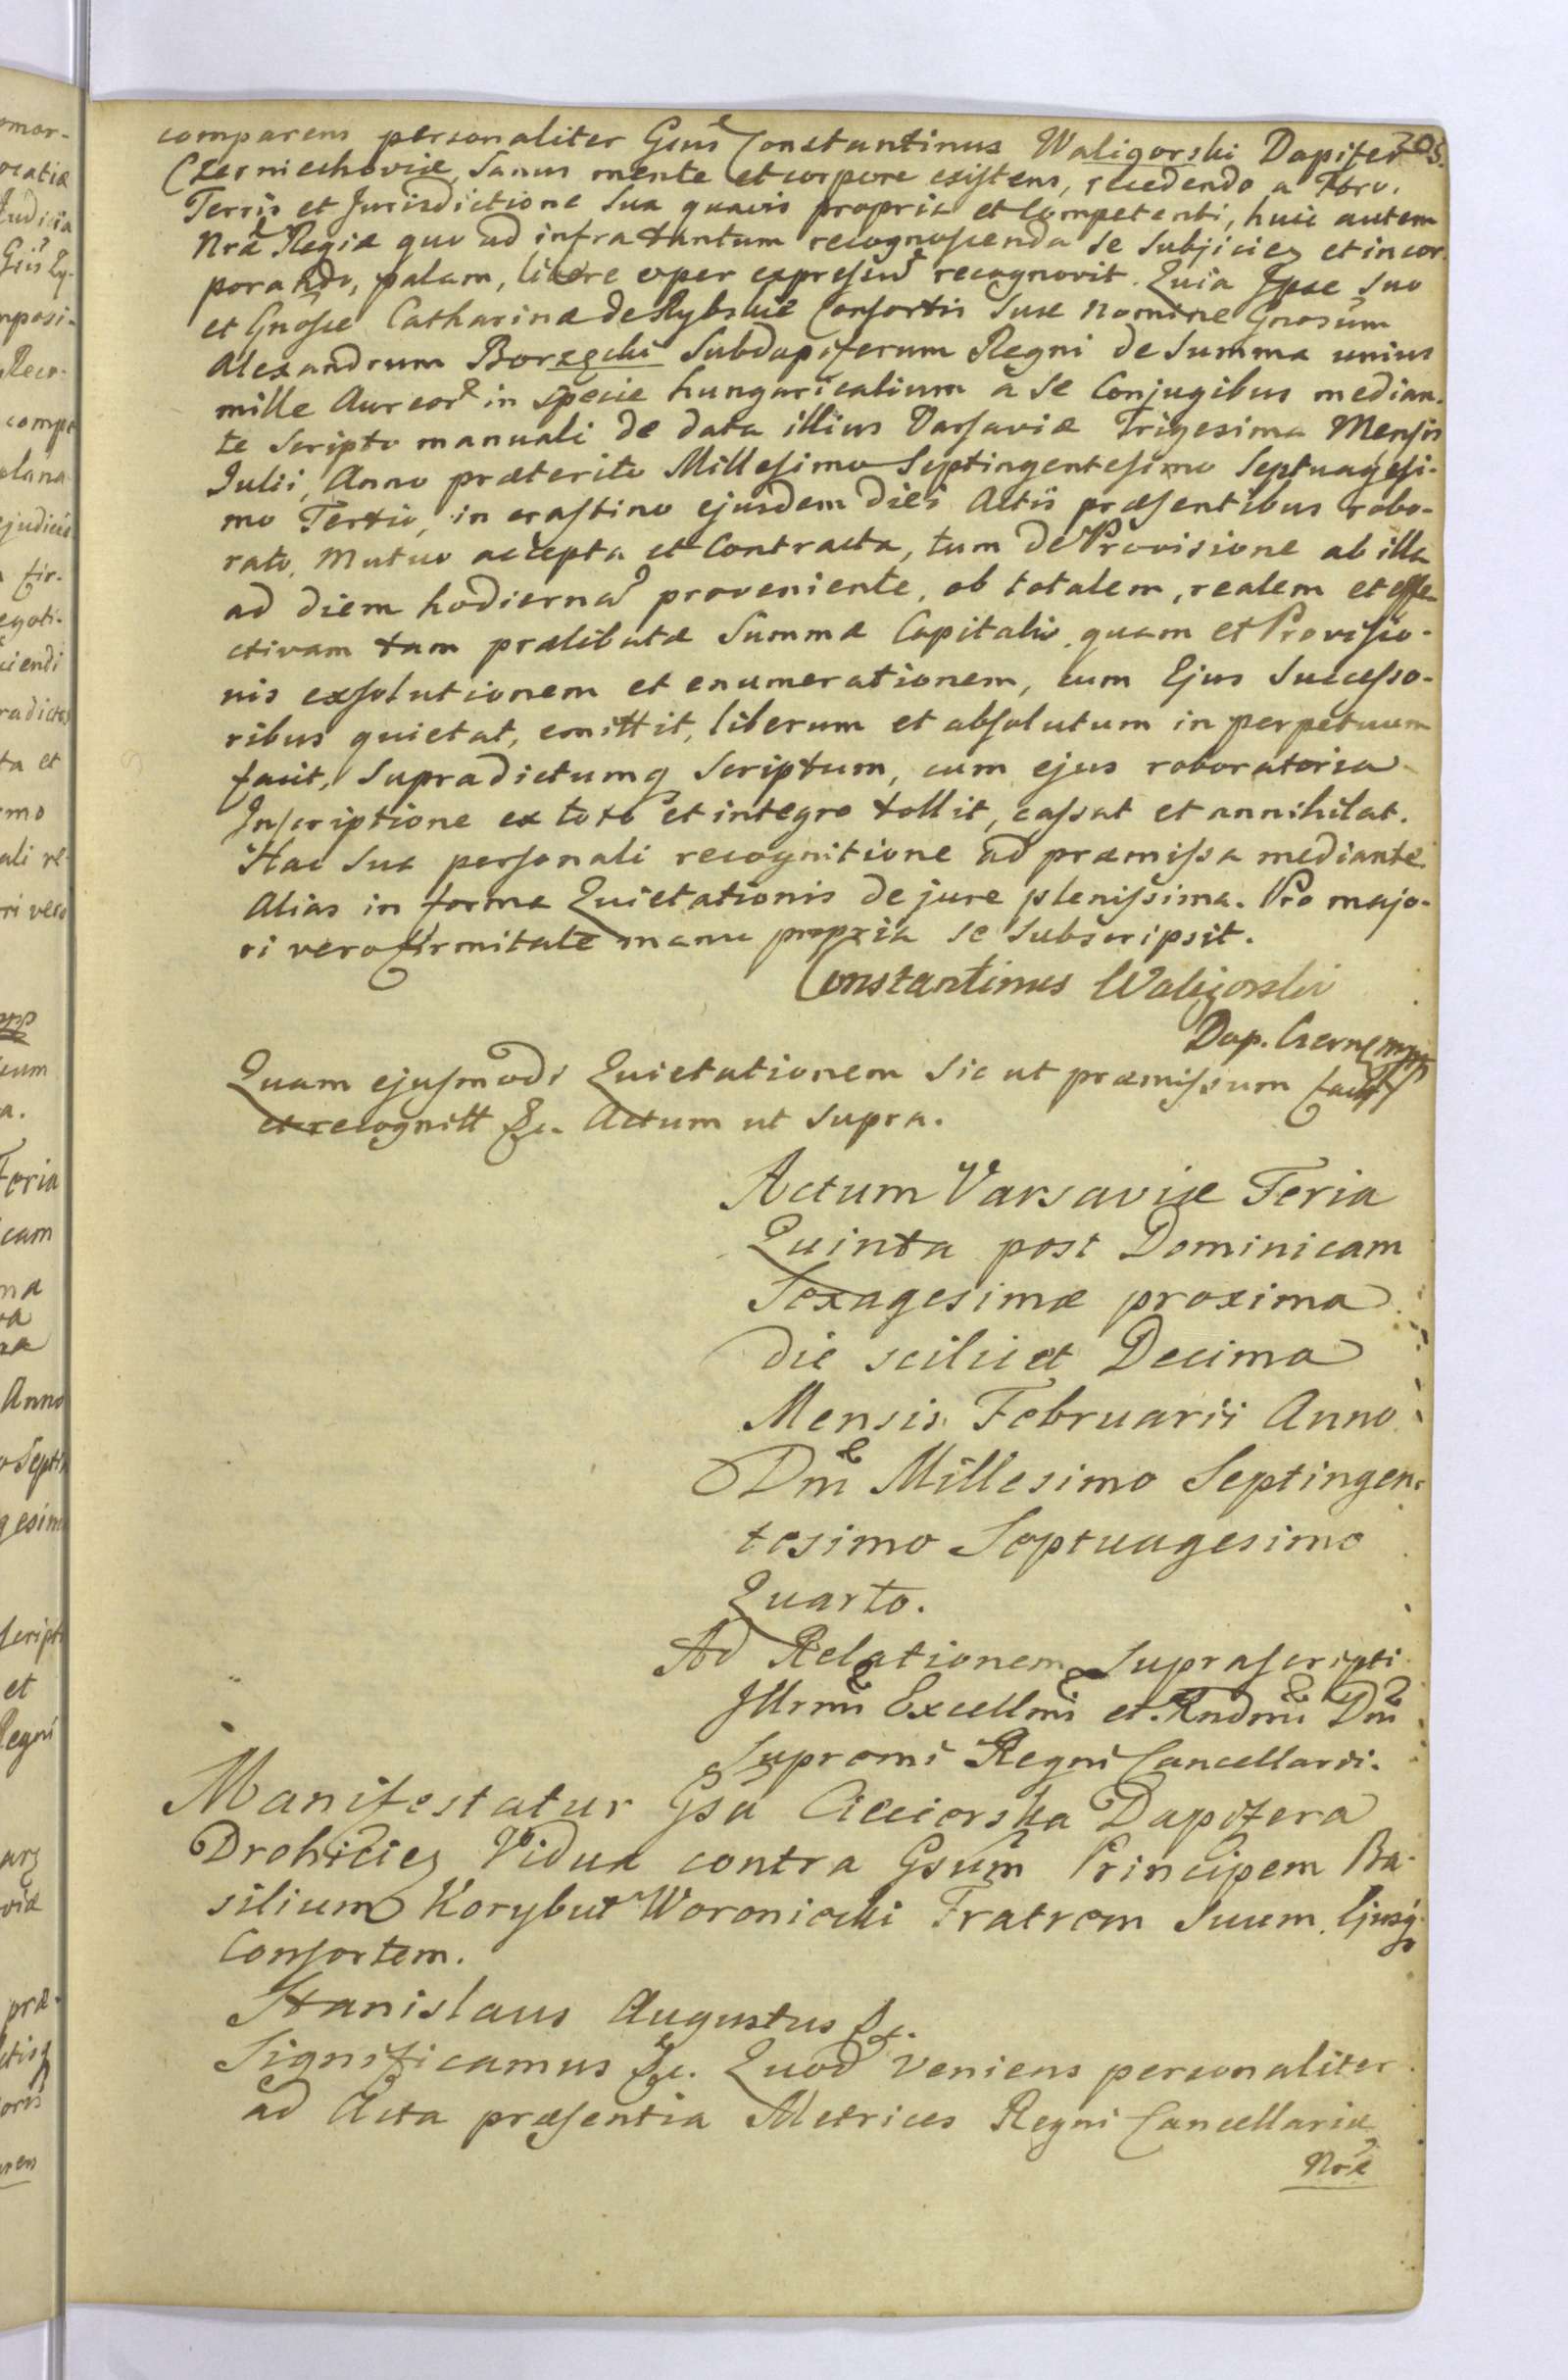 205.
comparens personaliter Gsus Constantinus Waligorski Dapifer
Czerniechoviæ, Sanus mente et corpore existens, recedendo a Foro,
Terris et Jurisdictione Sua quavis propria et Competenti, huic autem
Nrã Regiæ quo ad infra tantum recognoscenda se Subjicien et incor-
porando, palam, libere ac per expressũ recognovit. Quia Ipse Suo
et Gnosæ Catharinæ de Rybskie Consortis Suæ Nomine Gnosum
Alexandrum Borzęcki Subdapiferum Regni de Summa unius
mille Aureor in specie hungaricalium a Se Conjugibus median-
te Scripto manuali de data illius Varsaviæ Trigesima Mensis
Julii, Anno præterito Millesimo Septingentesimo Septuagesi-
mo Tertio, in crastino ejusdem diei Actis præsentibus robo-
rato, Mutuo accepta et Contracta, tum de Provisione ab illa
ad diem hodiernã proveniente, ob totalem, realem et effe-
ctivam tam prælibatæ Summæ Capitalis, quam et Provisio-
nis exsolutionem et enumerationem, cum Ejus Successo-
ribus quietat, emittit, liberum et absolutum in perpetuum
facit, Supradictumq Scriptum, cum ejus roboratoria
Inscriptione ex toto et integro tollit, cassat et annihilat.
Hac Sua personali recognitione ad præmissa mediante.
Alias in forma Quietationis de jure plenissima. Pro majo-
ri vero firmitate manu propria se Subscripsit.
Constantinus Waligorski
Dap. Czern mpp
Quam ejusmodi Quietationem Sic ut præmissum facit
et recognitt &c. Actum ut Supra.
Actum Varsaviæ Feria
Quinta post Dominicam
Sexagesimæ proxima
die scilicet Decima
Mensis Februarii Anno
Dni Millesimo Septingen-
tesimo Septuagesimo
Quarto.
Ad Relationem Suprascripti
Illrmi Excellmi et Rndmi Dni
Supremi Regni Cancellarii.
Manifestatur Gsa Cieciorska Dapifera
Drohicien Vidua contra Gsum Principem Ba-
silium Korybut Woroniecki Fratrem Suum, Ejusq
Consortem.
Stanislaus Augustus &c.
Significamus &c. Quod veniens personaliter
ad Acta præsentia Metrices Regni Cancellariæ
Nræ